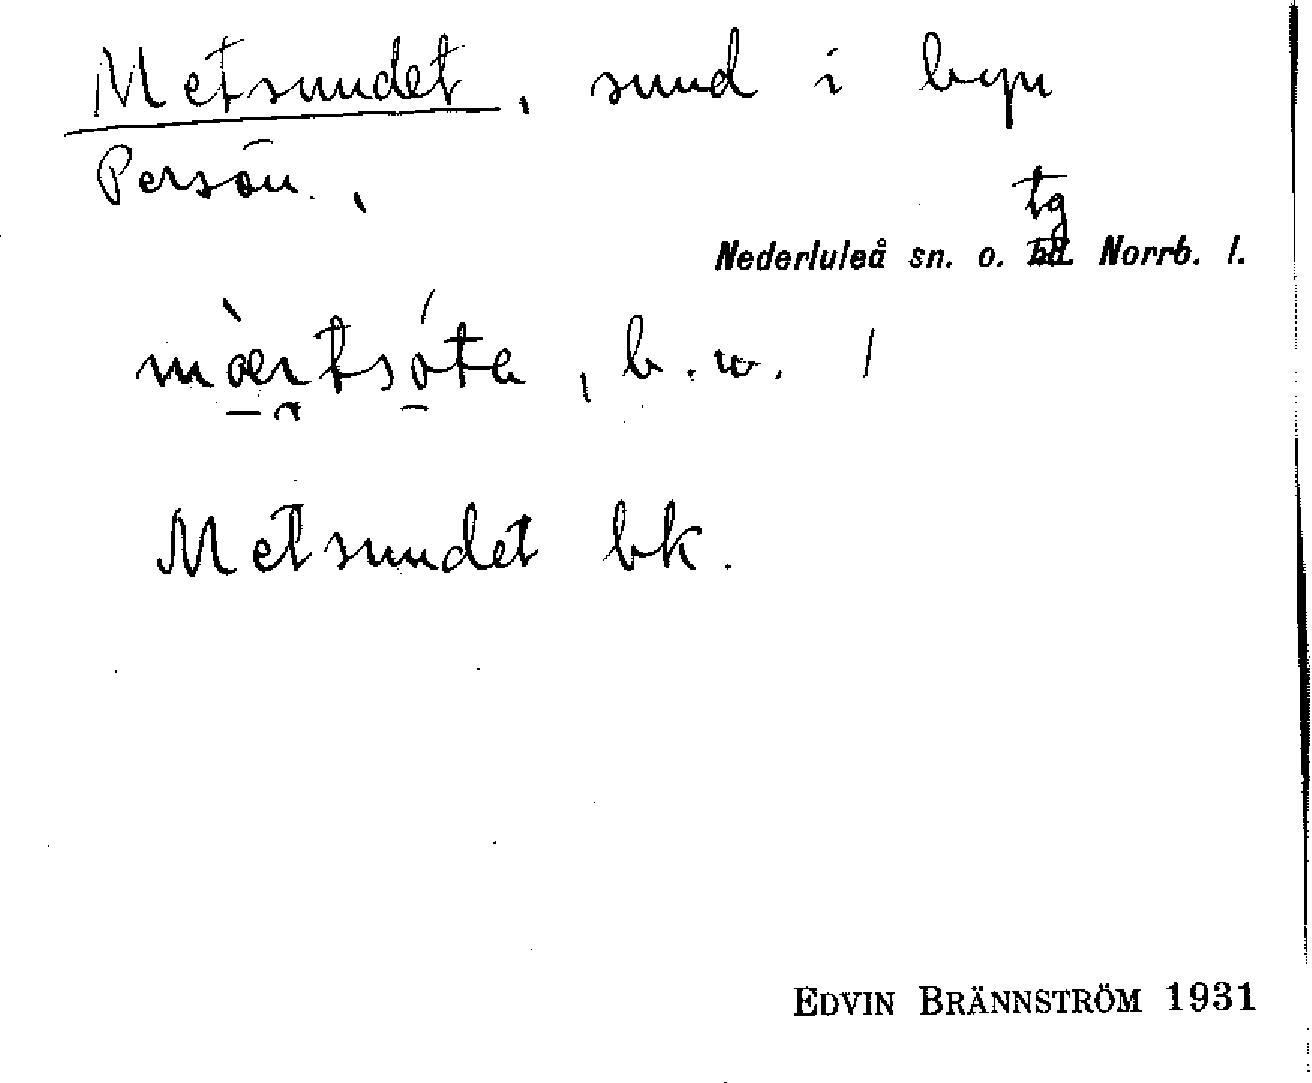 Metsundet, sund i byn
Persön.,
tg
Nederluleå sn. o. Norrb. l.
mærtsóta, b.w. /
Metsundet bk.
EDVIN BRÄNNSTRÖM 1931